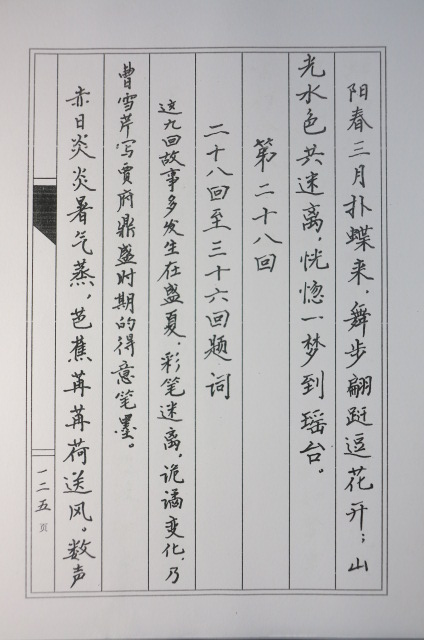 阳春三月扑蝶来，舞步翩跹逗花开；山
光水色共迷离，恍惚一梦到瑶台。
第二十八回
二十八回至三十六回题词
这九回故事多发生在盛夏，彩笔迷离，诡谲变化，乃
曹雪芹写贾府鼎盛时期的得意笔墨。
赤日炎炎暑气蒸，芭蕉苒苒荷送风。数声
一二五页